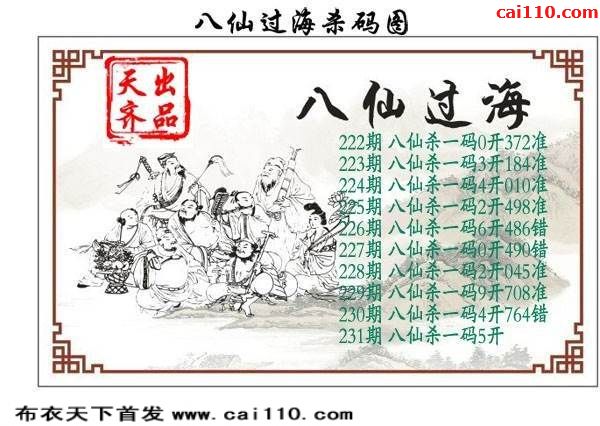 八仙过海杀码图
cai110.com
天齐
出品
八仙过海
222期 八仙杀一码0开372准
223期 八仙杀一码3开184准
224期 八仙杀一码4开010准
225期 八仙杀一码2开498准
226期 八仙杀一码6开486错
227期 八仙杀一码0开490错
228期 八仙杀一码2开045准
229期 八仙杀一码9开708准
230期 八仙杀一码4开764错
231期 八仙杀一码5开
布衣天下首发 www.cai110.com